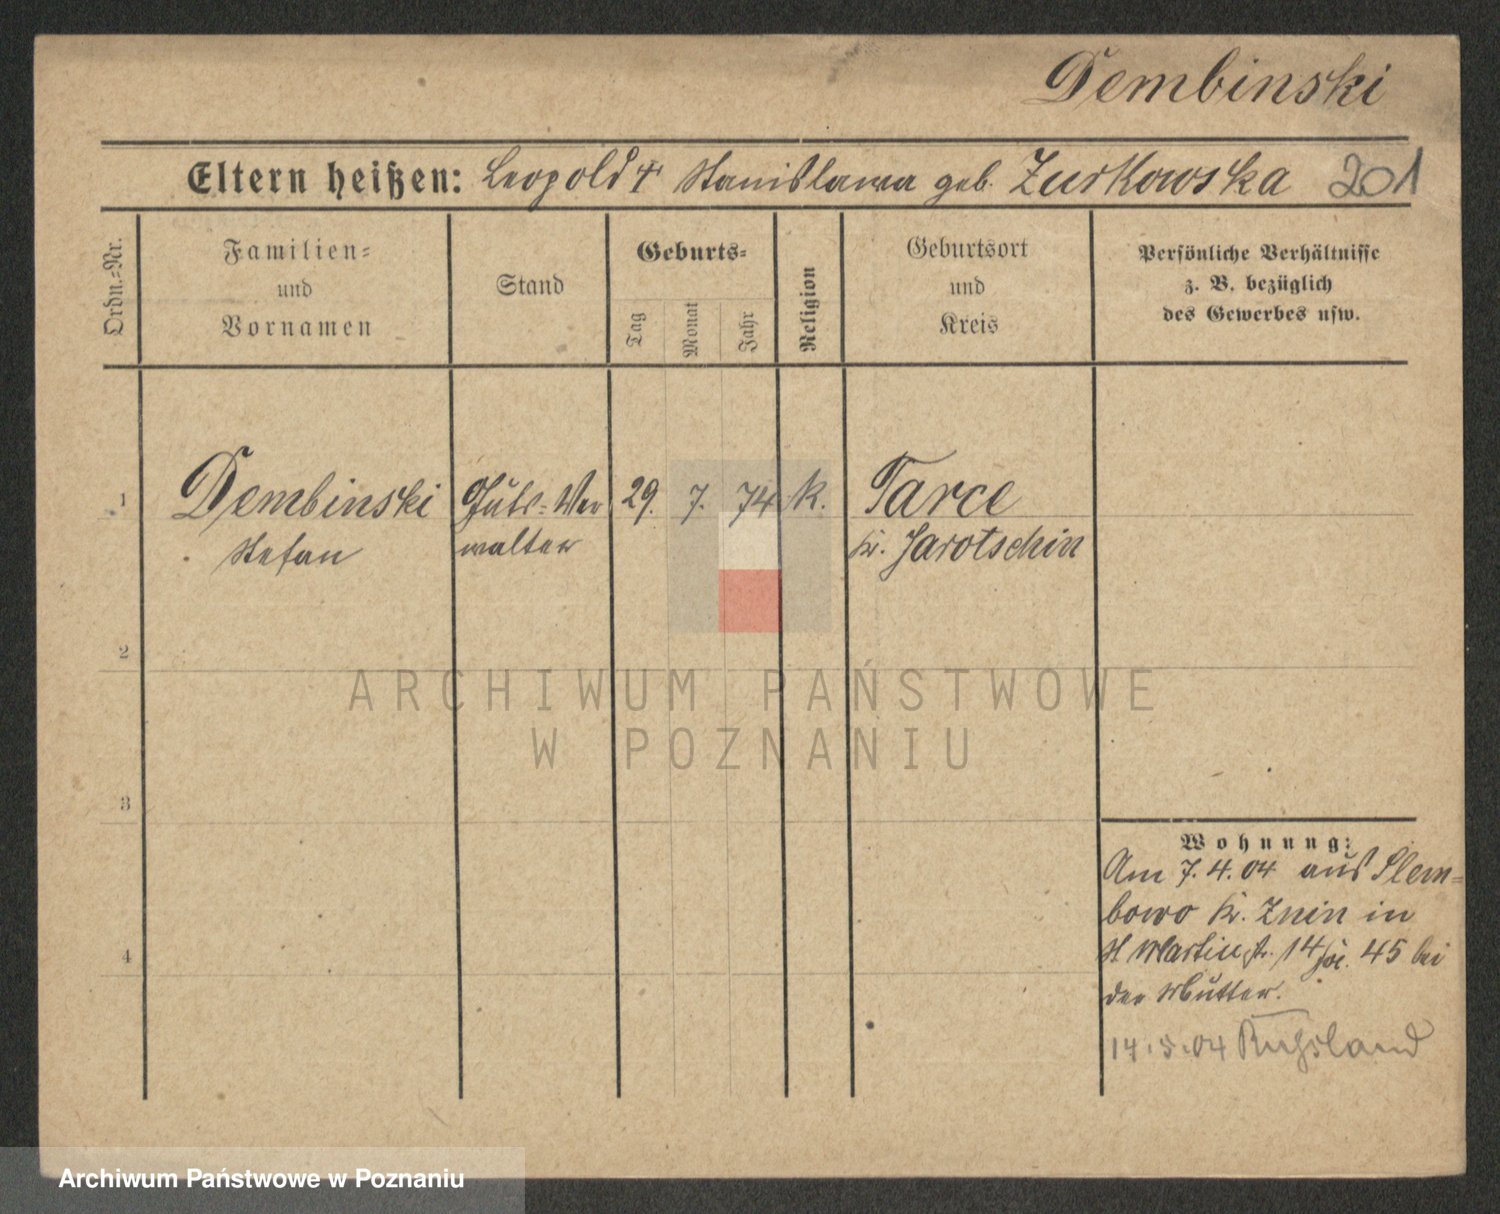 Dembinski
Eltern heißen: Leopold † Stanislawa geb. Zurkowska 201
Ordn.-Nr.
Familien-
und
Vornamen
Stand
Geburts-
Tag
Monat
Jahr
Religion
Geburtsort
und
Kreis
Persönliche Verhältnisse
z. B. bezüglich
des Gewerbes usw.
1 Dembinski Guts-Ver 29. 7. 74 K. Tarce
Stefan walter Kr. Jarotschin
2
ARCHIWUM PAŃSTWOWE
W POZNANIU
3
Wohnung:
Am 7.4.04 aus Slem-
bowo Kr. Znin in
4
St Martinstr. 14 45 bei
der Mutter.
14.5.04 Russland
Archiwum Państwowe w Poznaniu